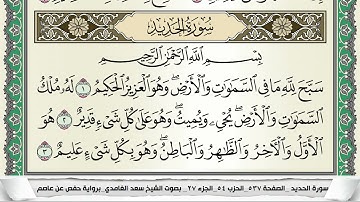 سُورَةُ الْحَدِيدِ
بِسْمِ اللَّهِ الرَّحْمَٰنِ الرَّحِيمِ
سَبَّحَ لِلَّهِ مَا فِي السَّمَٰوَٰتِ وَالْأَرْضِ ۖ وَهُوَ الْعَزِيزُ الْحَكِيمُ ١ لَهُ مُلْكُ
السَّمَٰوَٰتِ وَالْأَرْضِ ۖ يُحْيِۦ وَيُمِيتُ ۖ وَهُوَ عَلَىٰ كُلِّ شَيْءٍ قَدِيرٌ ٢ هُوَ
الْأَوَّلُ وَالْآخِرُ وَالظَّٰهِرُ وَالْبَاطِنُ ۖ وَهُوَ بِكُلِّ شَيْءٍ عَلِيمٌ ٣
سورة الحديد _ الصفحة ٥٣٧ _ الحزب ٥٤ _ الجزء ٢٧ _ بصوت الشيخ سعد الغامدي _ برواية حفص عن عاصم